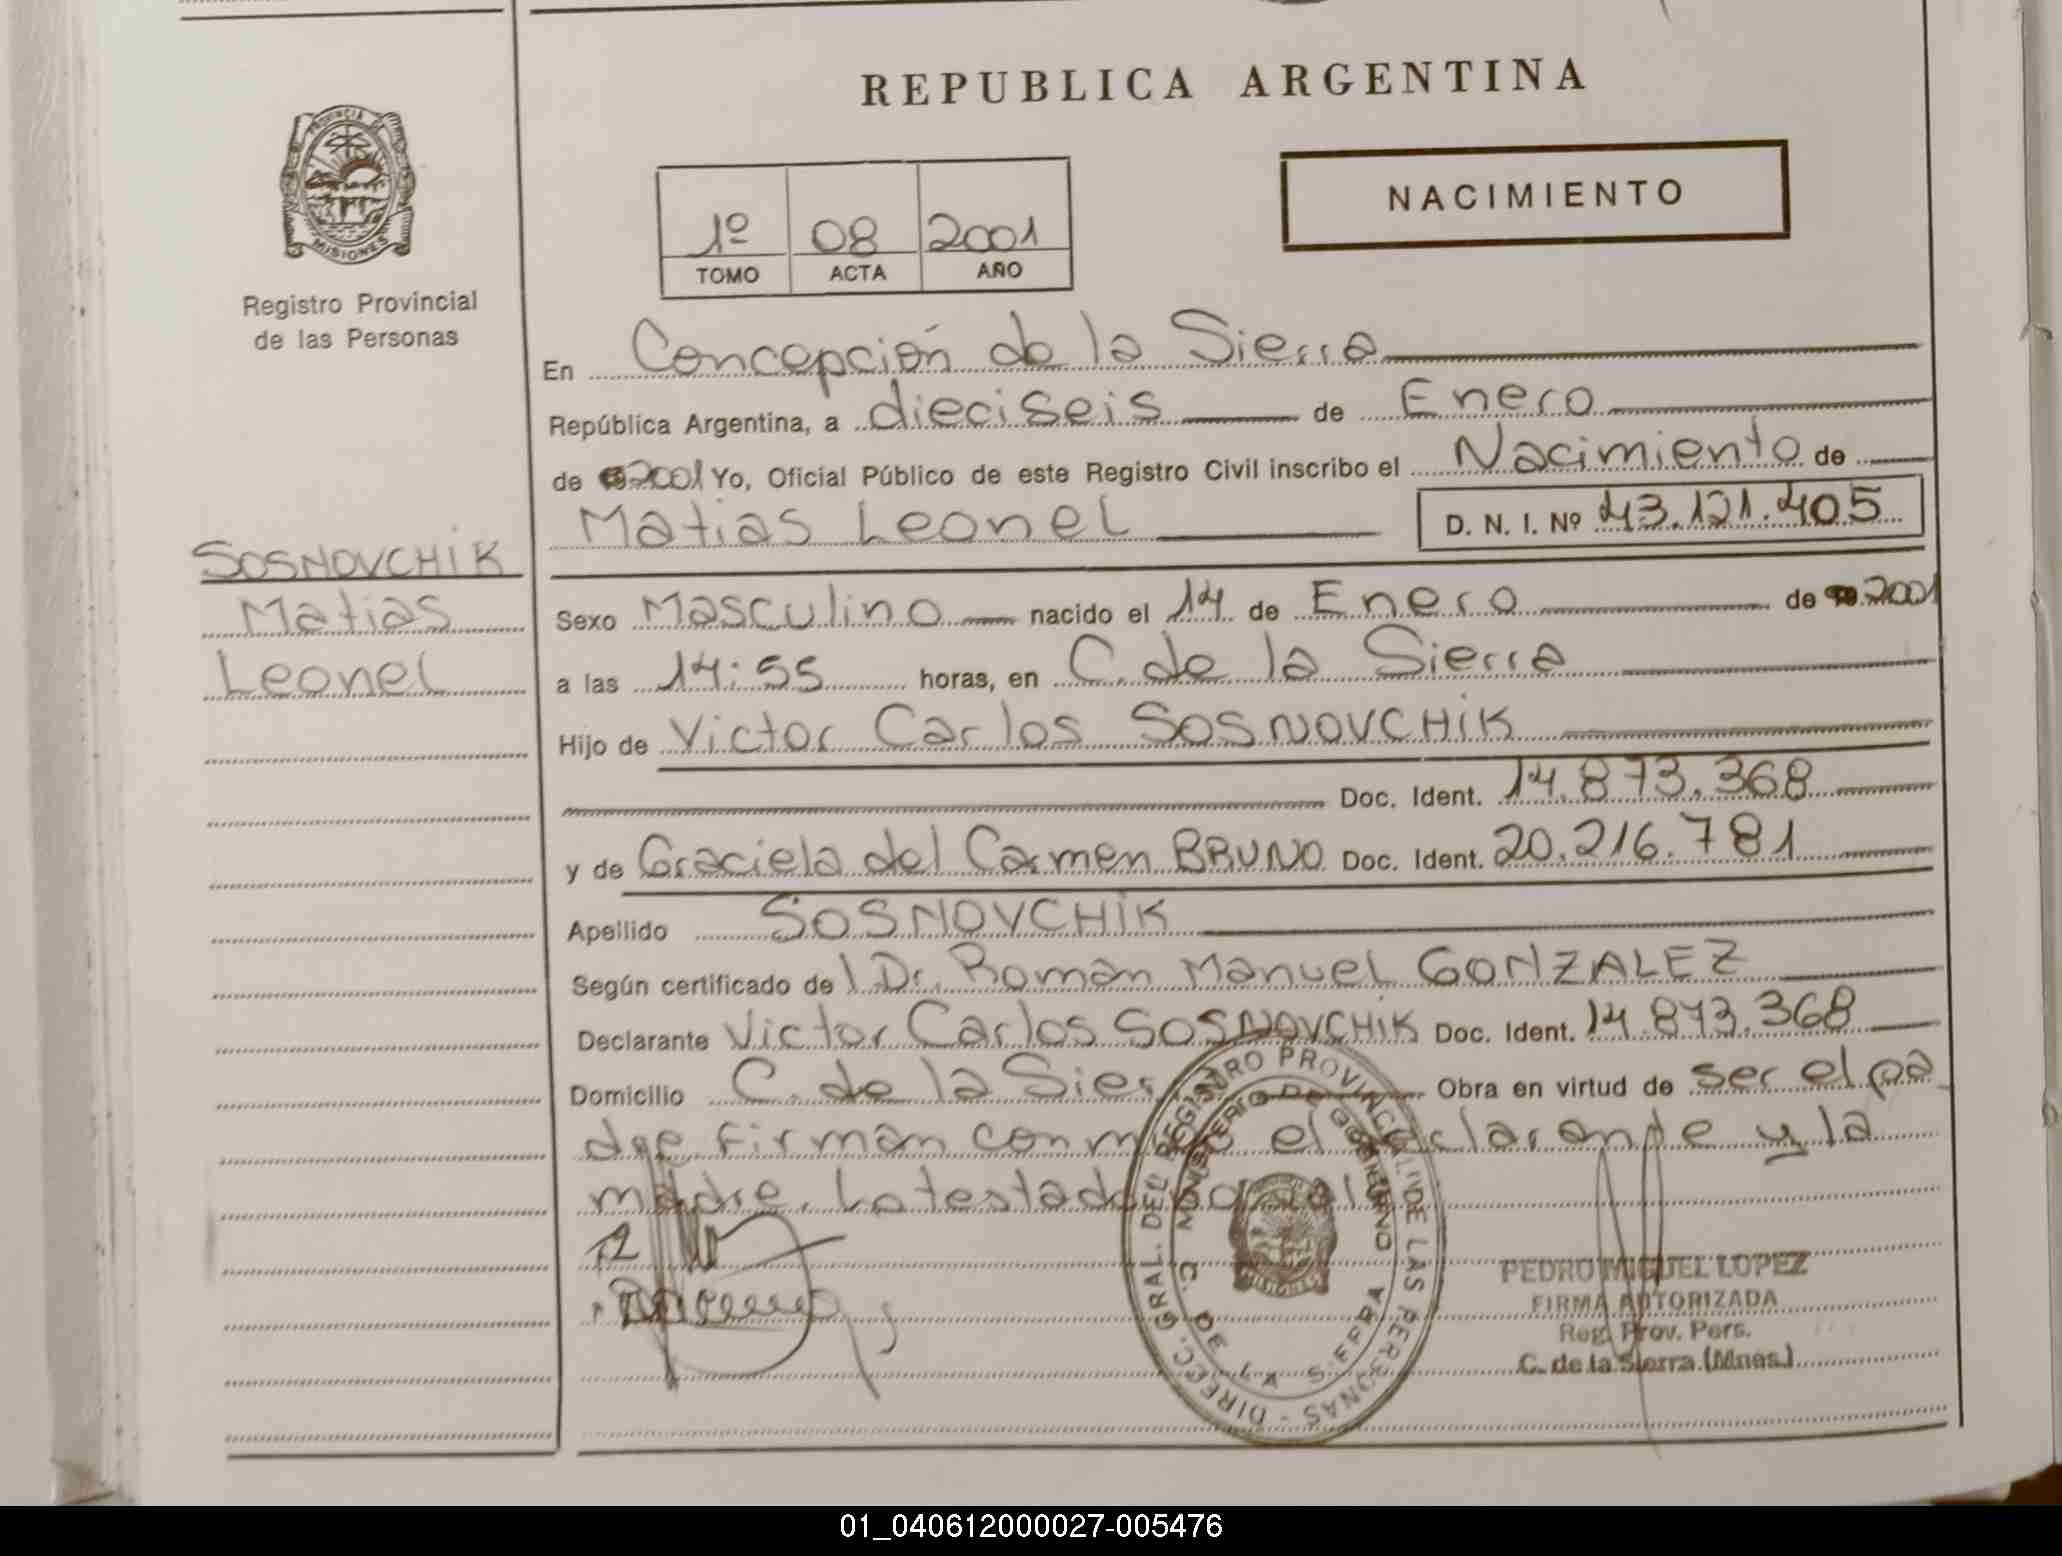 REPUBLICA ARGENTINA
PROVINCIA DE MISIONES
Registro Provincial
de las Personas
NACIMIENTO
1º 08 2001
TOMO ACTA AÑO
En Concepción de la Sierra
República Argentina, a dieciseis de Enero
de 2001 Yo, Oficial Público de este Registro Civil inscribo el Nacimiento de
Matias Leonel D. N. I. Nº 43.121.405
SOSNOVCHIK
Matias
Leonel
Sexo Masculino nacido el 14 de Enero de 2001
a las 14:55 horas, en C. de la Sierra
Hijo de Victor Carlos SOSNOVCHIK
Doc. Ident. 14.873.368
y de Graciela del Carmen BRUNO Doc. Ident. 20.216.781
Apellido SOSNOVCHIK
Según certificado de l Dr. Roman Manuel GONZALEZ
Declarante Victor Carlos SOSNOVCHIK Doc. Ident. 14.873.368
Domicilio C. de la Sier Obra en virtud de ser el pa
dre firman con el declarante y la
madre. Lo testado no
DIRECC. GRAL. DEL REGISTRO PROVINCIAL DE LAS PERSONAS
MINISTERIO DE GOBIERNO
C. DE LA SIERRA
PEDRO MIGUEL LOPEZ
FIRMA AUTORIZADA
Reg. Prov. Pers.
C. de la Sierra (Mnes.)
01_040612000027-005476